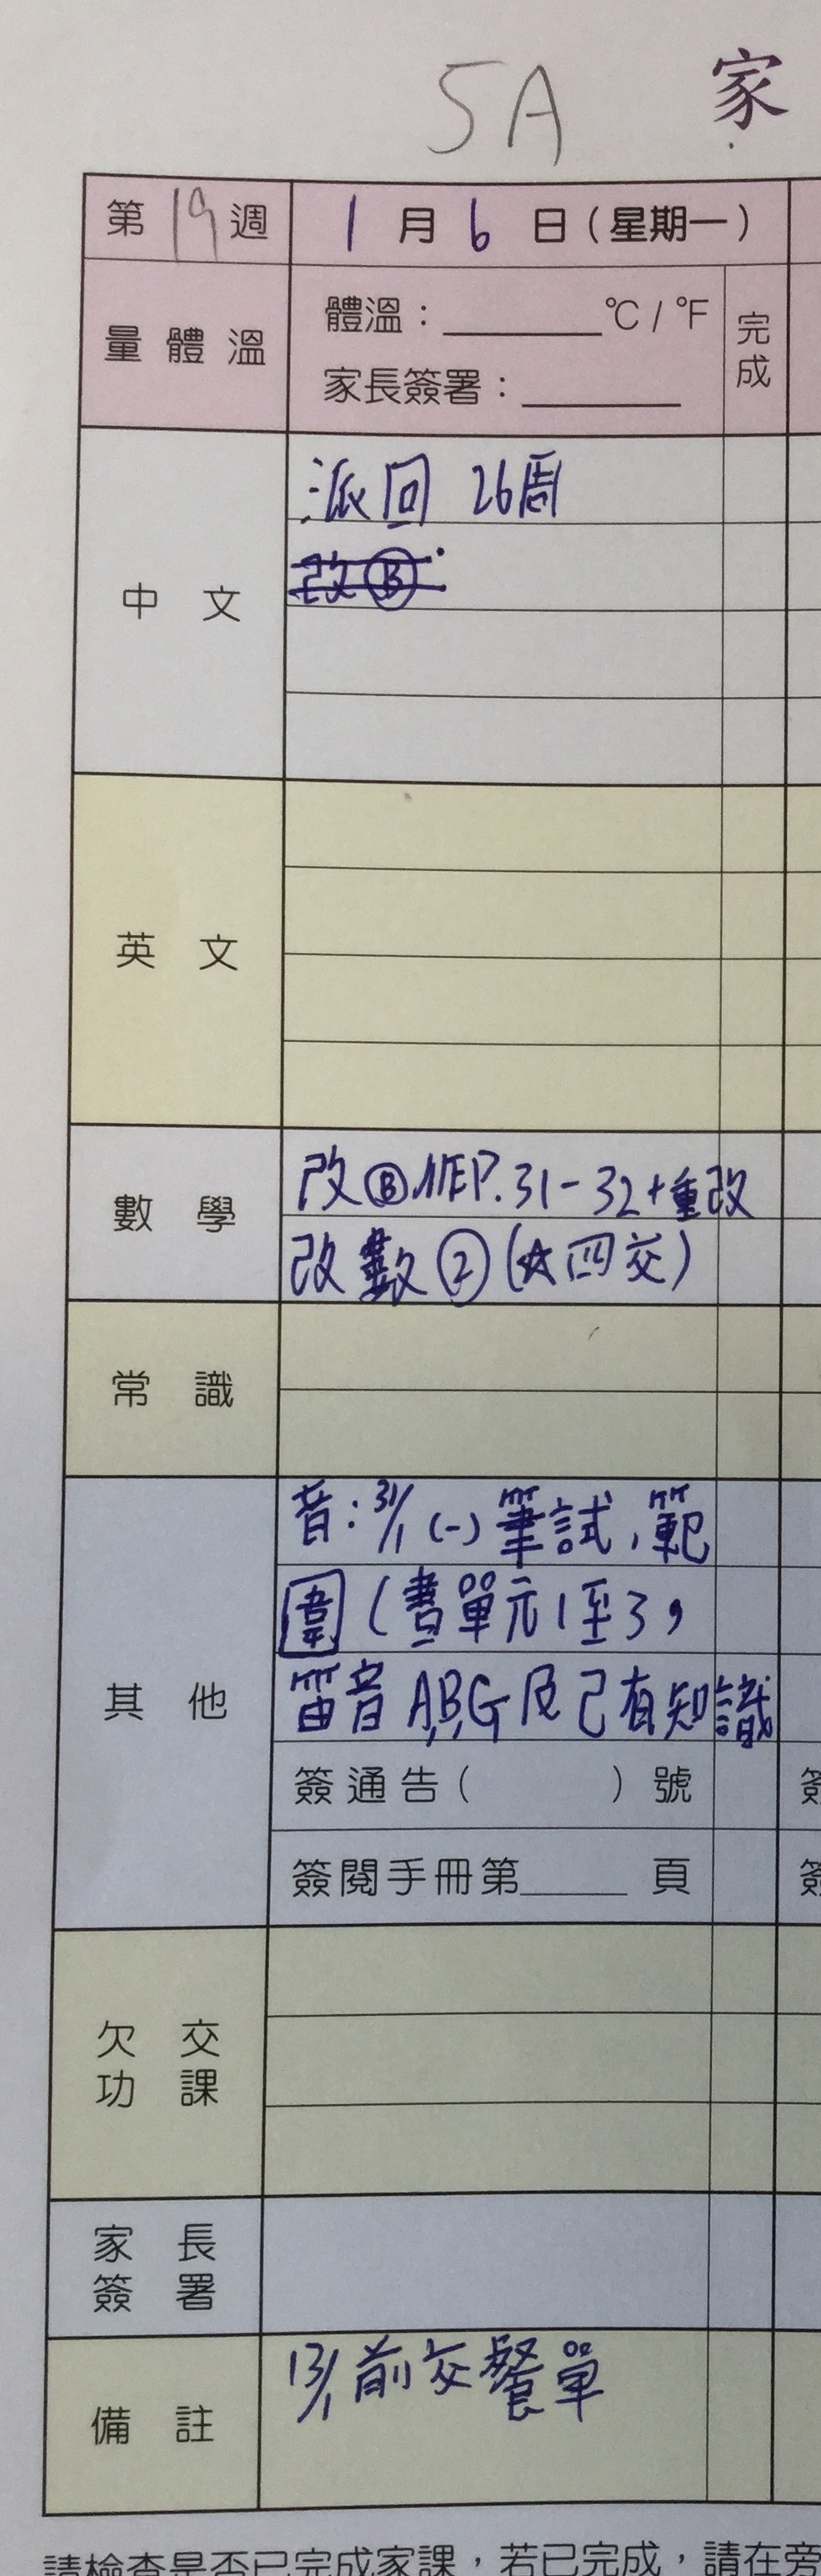 5A 家
第19週 1月6日(星期一)
量體溫 體溫:______°C / °F 完成
家長簽署:______
中文
派回 26周
改Ⓑ
英文
數學
改ⒷNEP.31-32+重改
改數②(☆四交)
常識
其他
音:31/1 (一) 筆試,範
圍(書單元1至3,
笛音A,B,G及已有知識
簽通告( )號 簽
簽閱手冊第____頁 簽
欠交功課
家長簽署
備註
13/1前交餐單
請檢查是否已完成家課,若已完成,請在旁